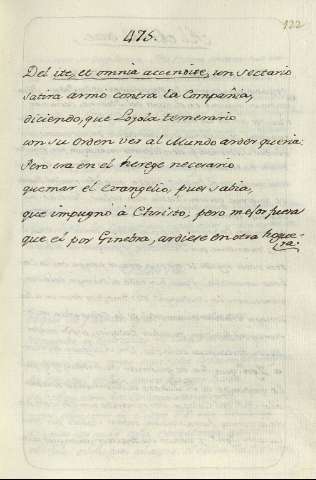 122
475.
Del ite, et omnia accendite, un sectario
satira armo contra la Compañia,
diciendo, que Loyola temerario
con su orden ver al Mundo arder queria;
Pero era en el herege necesario
quemar el Evangelio, pues sabia,
que impugnó à Christo; pero mejor fuera
que el por Ginebra, ardiese en otra hogue-
ra.